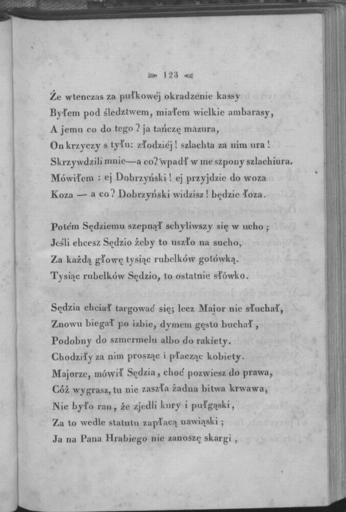 123
Że wtenczas za pułkowéj okradzenie kassy
Byłem pod śledztwem, miałem wielkie ambarasy,
A jemu co do tego? ja tańczę mazura,
On krzyczy s tyłu: złodziéj! szlachta za nim ura!
Skrzywdzili mnie—a co? wpadł w me szpony szlachiura.
Mówiłem: ej Dobrzyński! ej przyjdzie do woza
Koza — a co? Dobrzyński widzisz! będzie łoza.
Potém Sędziemu szepnął schyliwszy się w ucho;
Jeśli chcesz Sędzio żeby to uszło na sucho,
Za każdą głowę tysiąc rubelków gotówką.
Tysiąc rubelków Sędzio, to ostatnie słówko.
Sędzia chciał targować się; lecz Major nie słuchał,
Znowu biegał po izbie, dymem gęsto buchał,
Podobny do szmermelu albo do rakiety.
Chodziły za nim prosząc i płacząc kobiety.
Majorze, mówił Sędzia, choć pozwiesz do prawa,
Cóż wygrasz, tu nie zaszła żadna bitwa krwawa,
Nie było ran, że zjedli kury i półgąski,
Za to wedle statutu zapłacą nawiąski;
Ja na Pana Hrabiego nie zanoszę skargi,